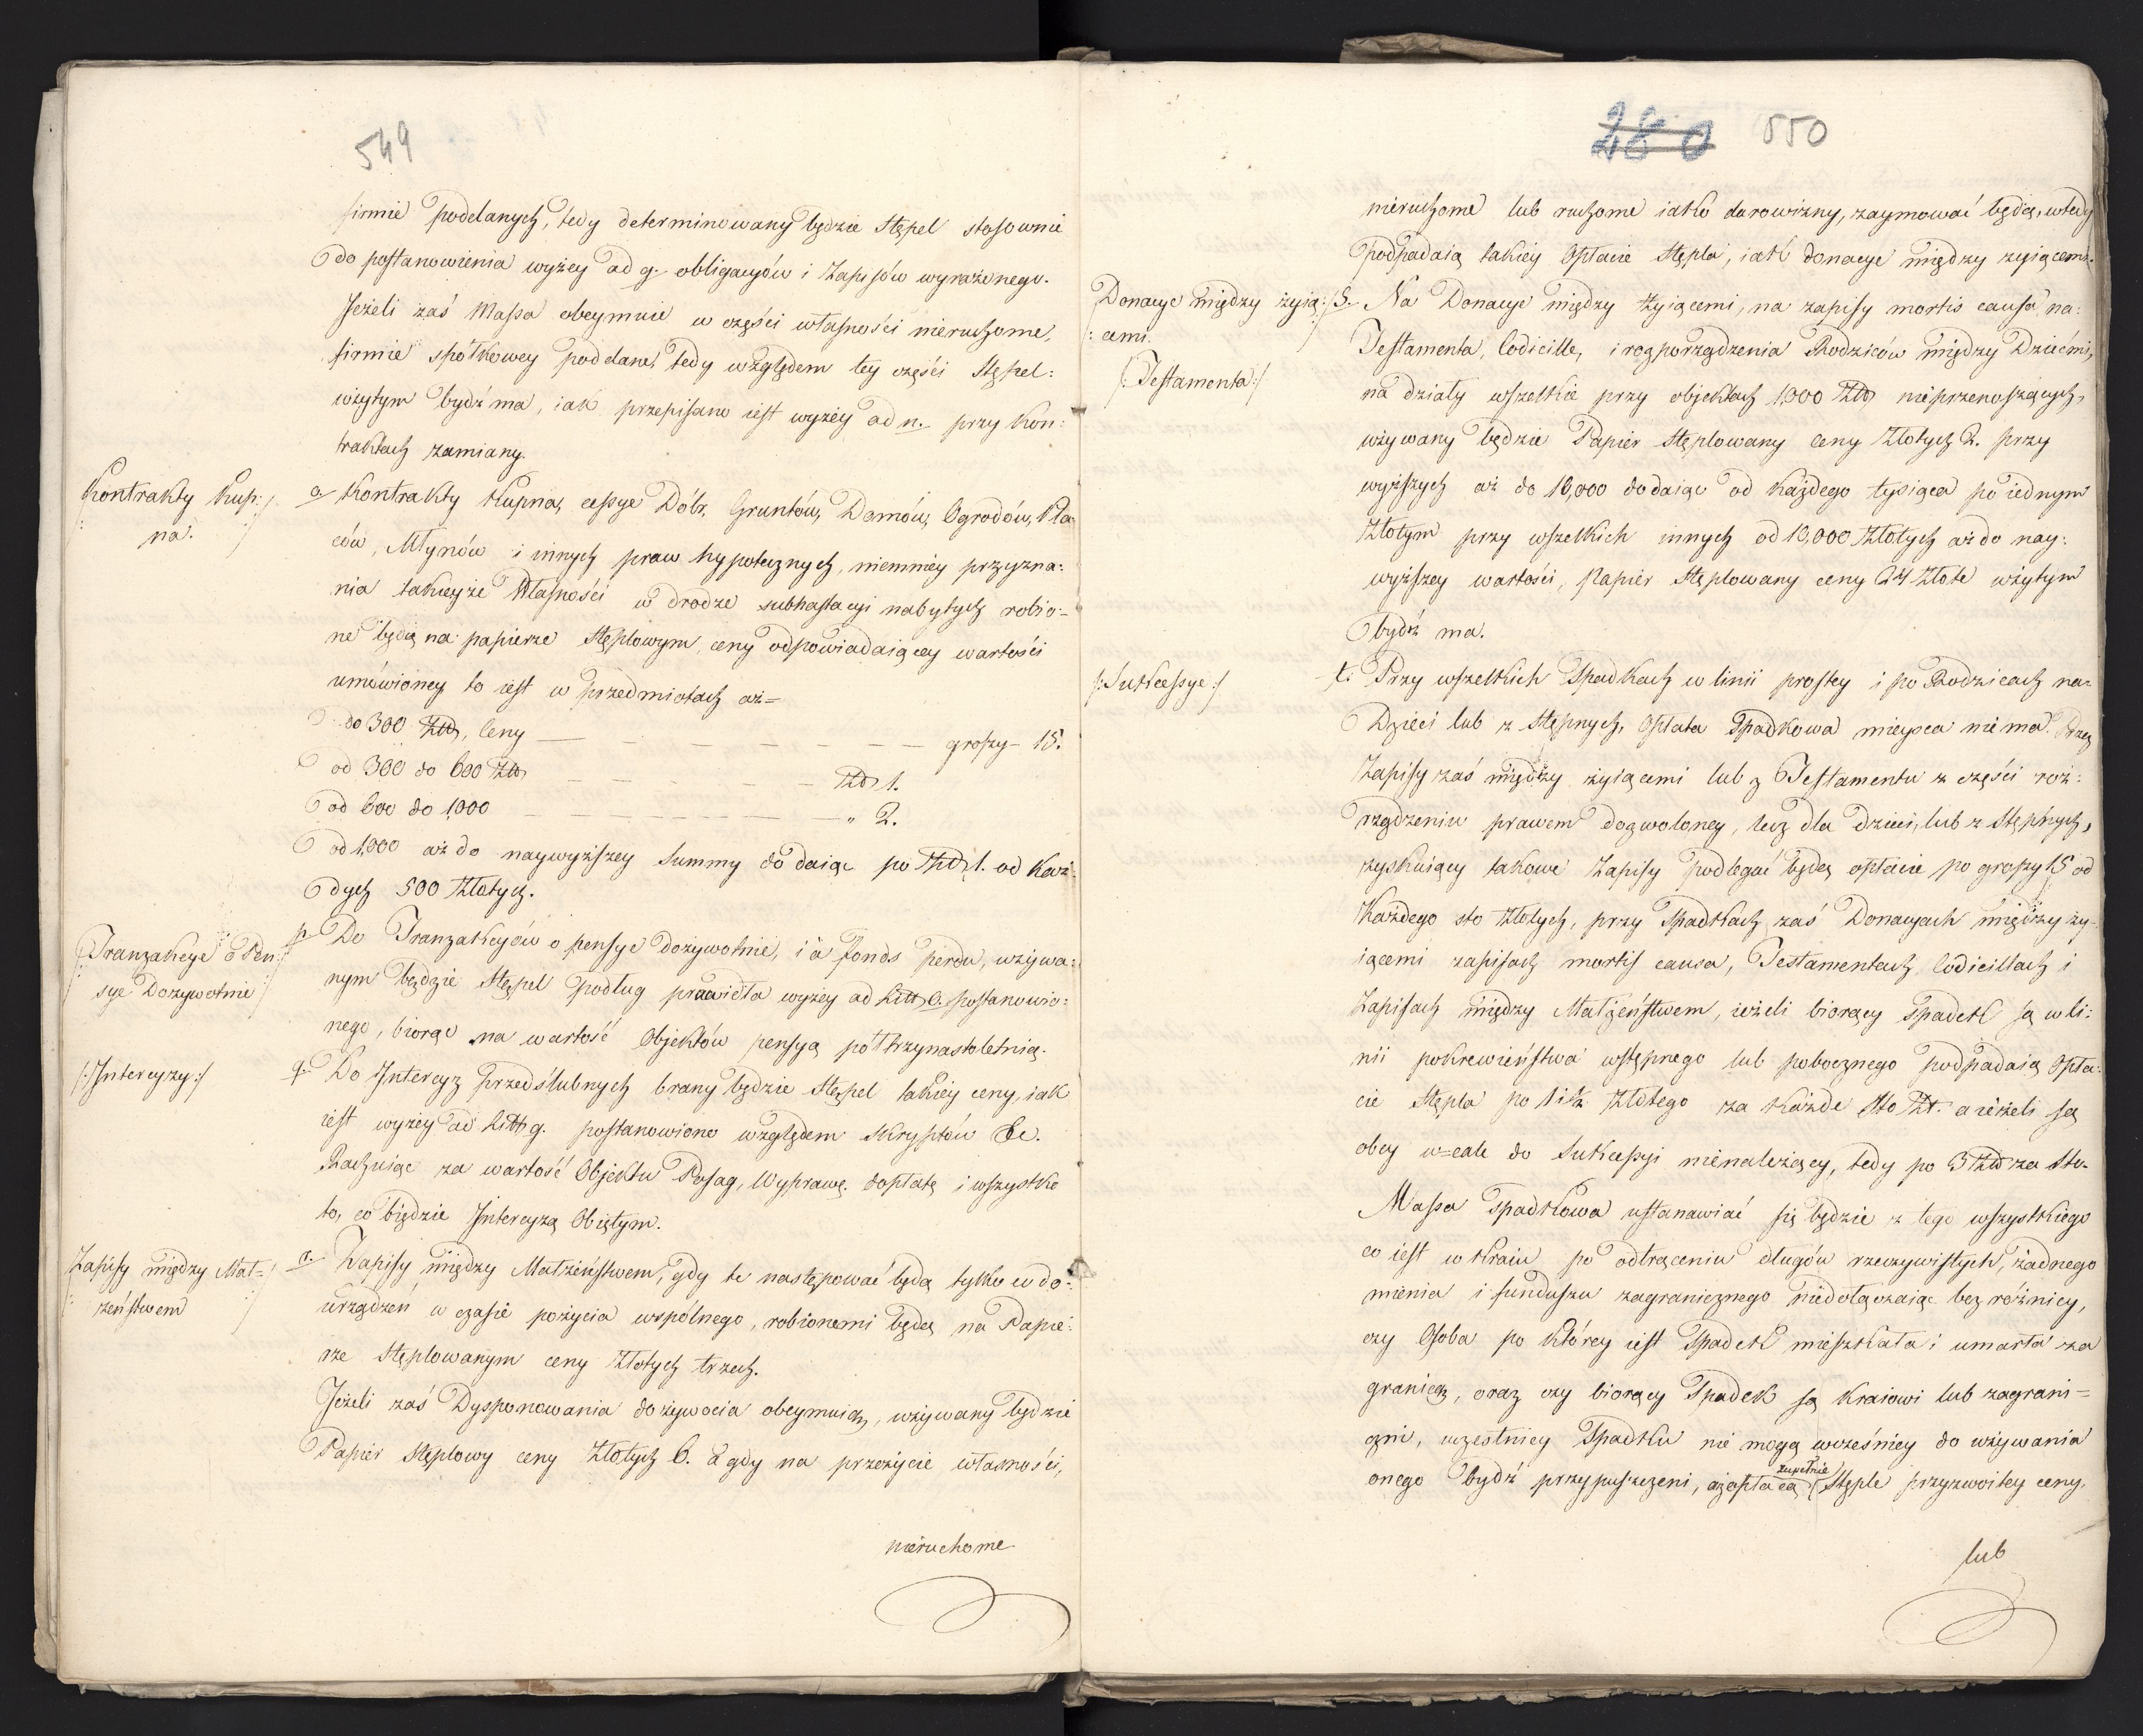 549
firmie poddanych, tedy determinowany będzie Stępel stosownie
do postanowienia wyżey ad g. obligacyów i Zapisów wyrażonego.
Jeżeli zaś Massa obeymuie w części własności nieruchome,
firmie spółkowey poddane, tedy względem tey części Stępel
użytym bydź ma, iak przepisano iest wyżey ad n. przy Kon:
traktach zamiany.
Kontrakty Kup:
na.
o. Kontrakty Kupna, cessye Dóbr, Gruntów, Domów, Ogrodów, Pla
ców, Młynów i innych praw hypotecznych, niemniey przyzna:
nia takieyże Własności w drodze subhastacyi nabytych robio=
ne będą na papierze Stęplowym, ceny odpowiadaiącey wartości
umówioney to iest w przedmiotach aż=
do 300 Złł, Ceny — — — — — — groszy — 15.
od 300 do 600 Złł — — — — Złł 1.
od 600 do 1,000 — — — — — — „ 2.
od 1,000 aż do naywyższey Summy dodaiąc po Złł 1. od Każ:
dych 500 Złotych.
Tranzakcye o Pen:
sye Dożywotnie
p. Do Tranzakcyów o pensye dożywotnie, i a fonds perdu, używa:
nym będzie Stępel podług prawidła wyżey ad Litt o. postanowio:
nego, biorąc na wartość Objektów pensyą półtrzynastoletnią.
/:Intercyzy:/
q. Do Intercyz przedślubnych brany będzie Stępel takiey ceny, iak
iest wyżey ad Litt g. postanowiono względem Skryptów &c.
Rachuiąc za wartość Objektu Posag, Wyprawę, dopłatę i wszystko
to, co będzie Intercyzą Obiętym.
Zapisy między Mał=
żeństwem
r. Zapisy między Małżeństwem, gdy te następować będą tylko w do:
urządzeń w czasie pożycia wspólnego, robionemi będą na Papie:
rze Stęplowanym ceny Złotych trzech.
Jeżeli zaś Dysponowania dożywocia obeymuią, używany będzie
Papier Stęplowy ceny Złotych 6. a gdy na przeżycie własności,
nieruchome
280 550
nieruchome lub ruchome iako darowizny, zaymować będą, wtedy
podpadaią takiey Opłacie Stępla, iak donacye między żyiącemi.
Donacye między żyią:
:cemi.
/:Testamenta:/
S. Na Donacye między żyiącemi, na zapisy mortis causa, na:
Testamenta, Codicille, i rozporządzenia Rodziców między Dziećmi,
na działy wszelkie przy objektach 1,000 Złł nieprzenoszących,
używany będzie Papier Stęplowany ceny Złotych 2. przy
wyższych aż do 10,000 dodaiąc od każdego tysiąca po iednym
Złotym przy wszelkich innych od 10,000 Złotych aż do nay:
wyższey wartości, Papier Stęplowany ceny 24 Złote użytym
bydź ma.
/:Sukcessye:/
t. Przy wszelkich Spadkach w linii prostey i po Rodzicach na=
Dzieci lub z Stępnych, Opłata Spadkowa mieysca nie ma. Przez
Zapisy zaś między żyiącemi lub z Testamentu z części roz:
rządzeniu prawem dozwoloney, lecz dla dzieci, lub z Stępnych,
zyskuiący takowe Zapisy podlegać będą opłacie po groszy 15 od
Każdego sto Złotych, przy Spadkach zaś Donacyach między ży-
iącemi zapisach mortis causa, Testamentach, Codicillach i
Zapisach między Małżeństwem, ieżeli biorący Spadek są w li:
nii pokrewieństwa wstępnego lub pobocznego podpadaią Opła:
cie Stępla po 1 i ½ Złotego za każde Sto Zł. a ieżeli są
obcy w=cale do Sukcessyi nienależący, tedy po 3 Złł za Sto.
Massa Spadkowa ustanawiać się będzie z tego wszystkiego
co iest w Kraiu po odtrąceniu długów rzeczywistych, żadnego
mienia i funduszu zagranicznego niedołączaiąc bez różnicy,
czy Osoba po którey iest Spadek mieszkała i umarła za
granicą, oraz czy biorący Spadek są Kraiowi lub zagrani=
czni, uczestnicy Spadku nie mogą wcześniey do używania
onego bydź przypuszczeni, aż opłacą zupełnie Stęple przyzwoitey ceny.
lub